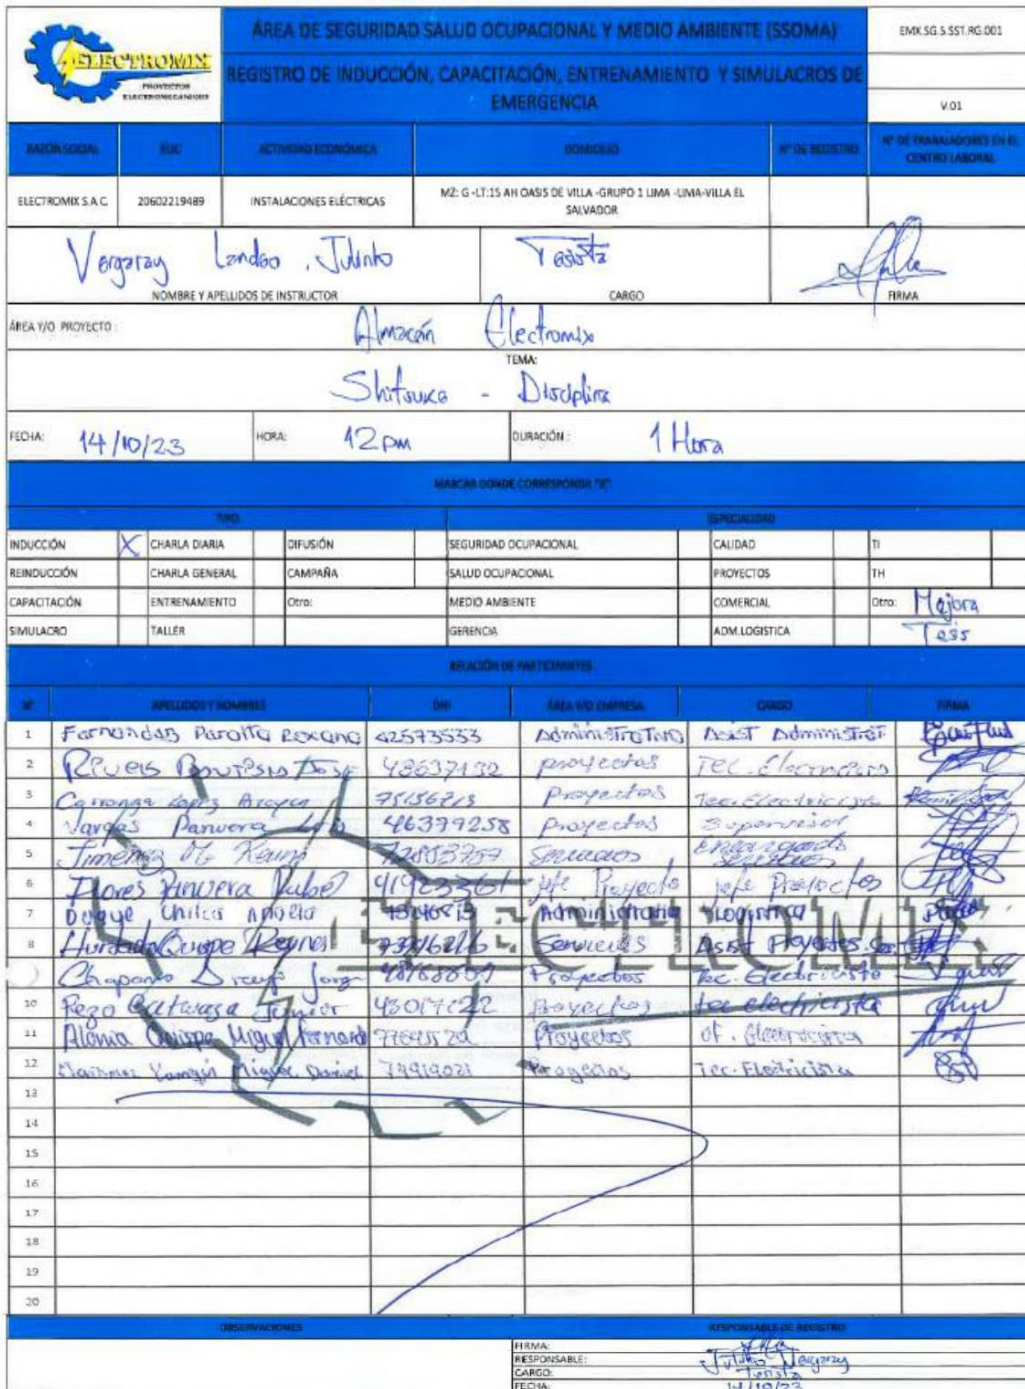 ELECTROMIX
PROYECTOS
ELECTROMECANICOS
ÁREA DE SEGURIDAD SALUD OCUPACIONAL Y MEDIO AMBIENTE (SSOMA)
REGISTRO DE INDUCCIÓN, CAPACITACIÓN, ENTRENAMIENTO Y SIMULACROS DE
EMERGENCIA
EMX.SG.S.SST.RG.001
V.01
RAZÓN SOCIAL RUC ACTIVIDAD ECONÓMICA DOMICILIO N° DE REGISTRO N° DE TRABAJADORES EN EL
CENTRO LABORAL
ELECTROMIX S.A.C. 20602219489 INSTALACIONES ELÉCTRICAS MZ: G -LT:15 AH OASIS DE VILLA -GRUPO 1 LIMA -LIMA-VILLA EL
SALVADOR
Vergaray Landeo, Julinho Tesista
NOMBRE Y APELLIDOS DE INSTRUCTOR CARGO FIRMA
ÁREA Y/O PROYECTO : Almacén Electromix
TEMA:
Shitsuke - Disciplina
FECHA: 14/10/23 HORA: 12 pm DURACIÓN : 1 Hora
MARCAR DONDE CORRESPONDA "X"
TIPO ESPECIALIDAD
INDUCCIÓN X CHARLA DIARIA DIFUSIÓN SEGURIDAD OCUPACIONAL CALIDAD TI
REINDUCCIÓN CHARLA GENERAL CAMPAÑA SALUD OCUPACIONAL PROYECTOS TH
CAPACITACIÓN ENTRENAMIENTO Otro: MEDIO AMBIENTE COMERCIAL Otro: Mejora
SIMULACRO TALLER GERENCIA ADM.LOGISTICA Tesis
RELACIÓN DE PARTICIPANTES
N° APELLIDOS Y NOMBRES DNI ÁREA Y/O EMPRESA CARGO FIRMA
1 Fernandez Peralta Roxana 42573533 Administrativo Asist Administrat
2 48637132 proyectos Tec. Electricista
3 Lopez 75156713 Proyectos Tec. Electricista
4 Vargas 46379258 Proyectos Supervisor
5 Jimenez Servicios Encargado
Servicios
6 Flores jefe Proyecto jefe Proyectos
7 Administrativo Logistica
8 Hurtado Quispe Servicios Asist Proyectos
9 Proyectos Tec. Electricista
10 Junior Proyectos tec electricista
11 Quispe Miguel Proyectos of. Electricista
12 Daniel 74919021 Proyectos Tec. Electricista
ELECTROMIX
13
14
15
16
17
18
19
20
OBSERVACIONES RESPONSABLE DE REGISTRO
FIRMA:
RESPONSABLE: Julinho Vergaray
CARGO: Tesista
FECHA: 14/10/23